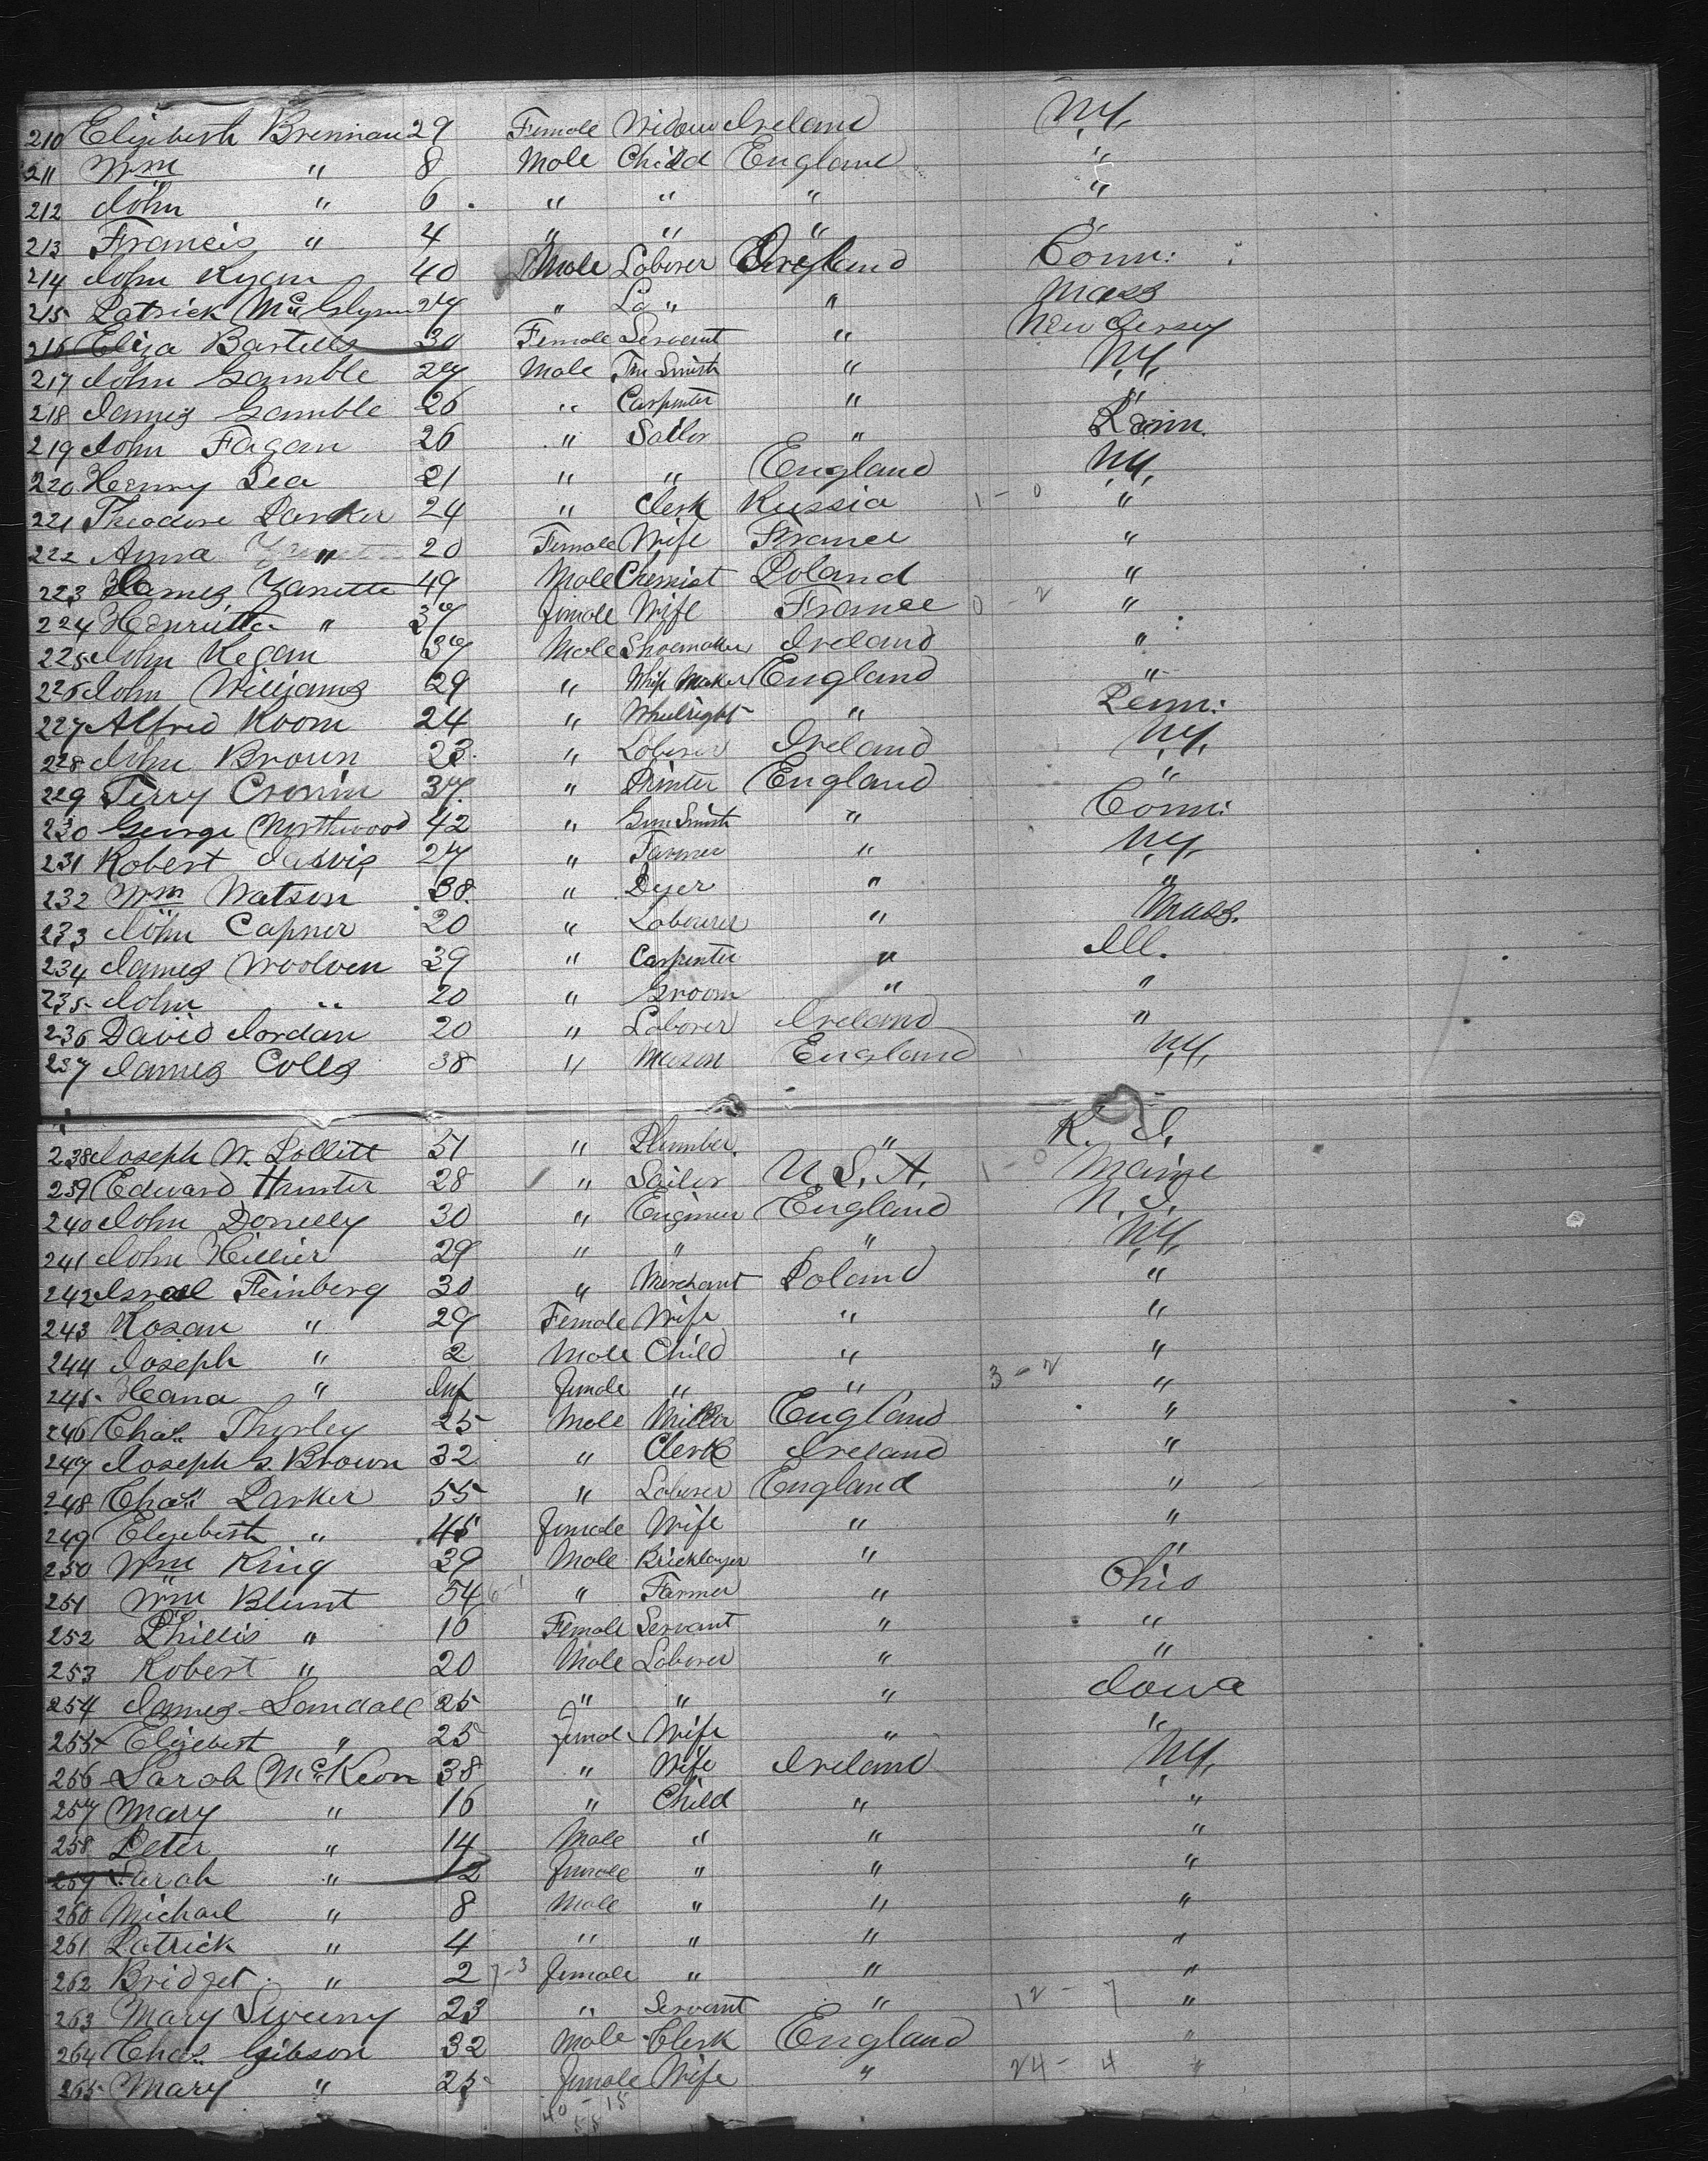 210 Elizebeth Brennan 29 Female Widow Ireland N.Y.
211 Wm " 8 Male Child England "
212 John " 6 " " " "
213 Francis " 4 " " " "
214 John Ryan 40 Male Laborer Ireland Conn:
215 Patrick McGlynn 27 " La " " Mass
216 Eliza Bartells 30 Female Servant " New Jersey
217 John Gamble 27 Male Tin Smith " N.Y.
218 James Gamble 26 " Carpenter " "
219 John Fagan 26 " Sailor "
220 Henry Lea 21 " " England N.Y.
221 Theodore Parker 24 " Clerk Russia 1-0 "
222 Anna " 20 Female Wife France "
223 James Zanette 49 Male Chemist Poland "
224 Henrietta " 37 female Wife France 0-2 "
225 John Kegan 37 Male Shoemaker Ireland "
226 John Williams 29 " Whip Maker England "
227 Alfred Room 24 " Wheelright " Penn:
228 John Brown 23 " Laborer Ireland N.Y.
229 Terry Cronin 37 " Printer England "
230 George Northwood 42 " Gun Smith " Conn:
231 Robert Jarvis 27 " Farmer " N.Y.
232 Wm Watson 38 " Dyer " "
233 John Capner 20 " Labourer " Mass.
234 James Woolven 39 " Carpenter " Ill.
235 John " 20 " Groom " "
236 David Jordan 20 " Laborer Ireland "
237 James Colls 38 " Mason England N.Y.
238 Joseph W. Pollitt 51 " Plumber " R. I.
239 Edward Hunter 28 " Sailor U.S.A. 1-0 Maine
240 John Donelly 30 " Engineer England N.J.
241 John Hillier 29 " " " N.Y.
242 Israel Feinberg 30 " Merchant Poland "
243 Rosan " 29 Female Wife " "
244 Joseph " 2 Male Child " "
245 Hana " Inf female " " 3-2 "
246 Chas. Thorley 25 Male Miller England "
247 Joseph S. Brown 32 " Clerk Ireland "
248 Chas. Parker 55 " Laborer England "
249 Elizebeth " 45 female Wife " "
250 Wm King 39 Male Bricklayer " "
251 Wm Blunt 54 " Farmer " Ohio
252 Phillis " 16 Female Servant " "
253 Robert " 20 Male Laborer " "
254 James Landall 25 " " " Iowa
255 Elizebeth " 25 female Wife " "
256 Sarah McKeon 38 " Wife Ireland N.Y.
257 Mary " 16 " Child " "
258 Peter " 14 Male " " "
259 Sarah " 12 female " " "
260 Michael " 8 Male " " "
261 Patrick " 4 " " " "
262 Bridget " 2 7-3 female " " "
263 Mary Sweeny 23 " Servant " 12-7 "
264 Chas. Gibson 32 Male Clerk England "
265 Mary " 25 female Wife " 24-4 "
40-18
58